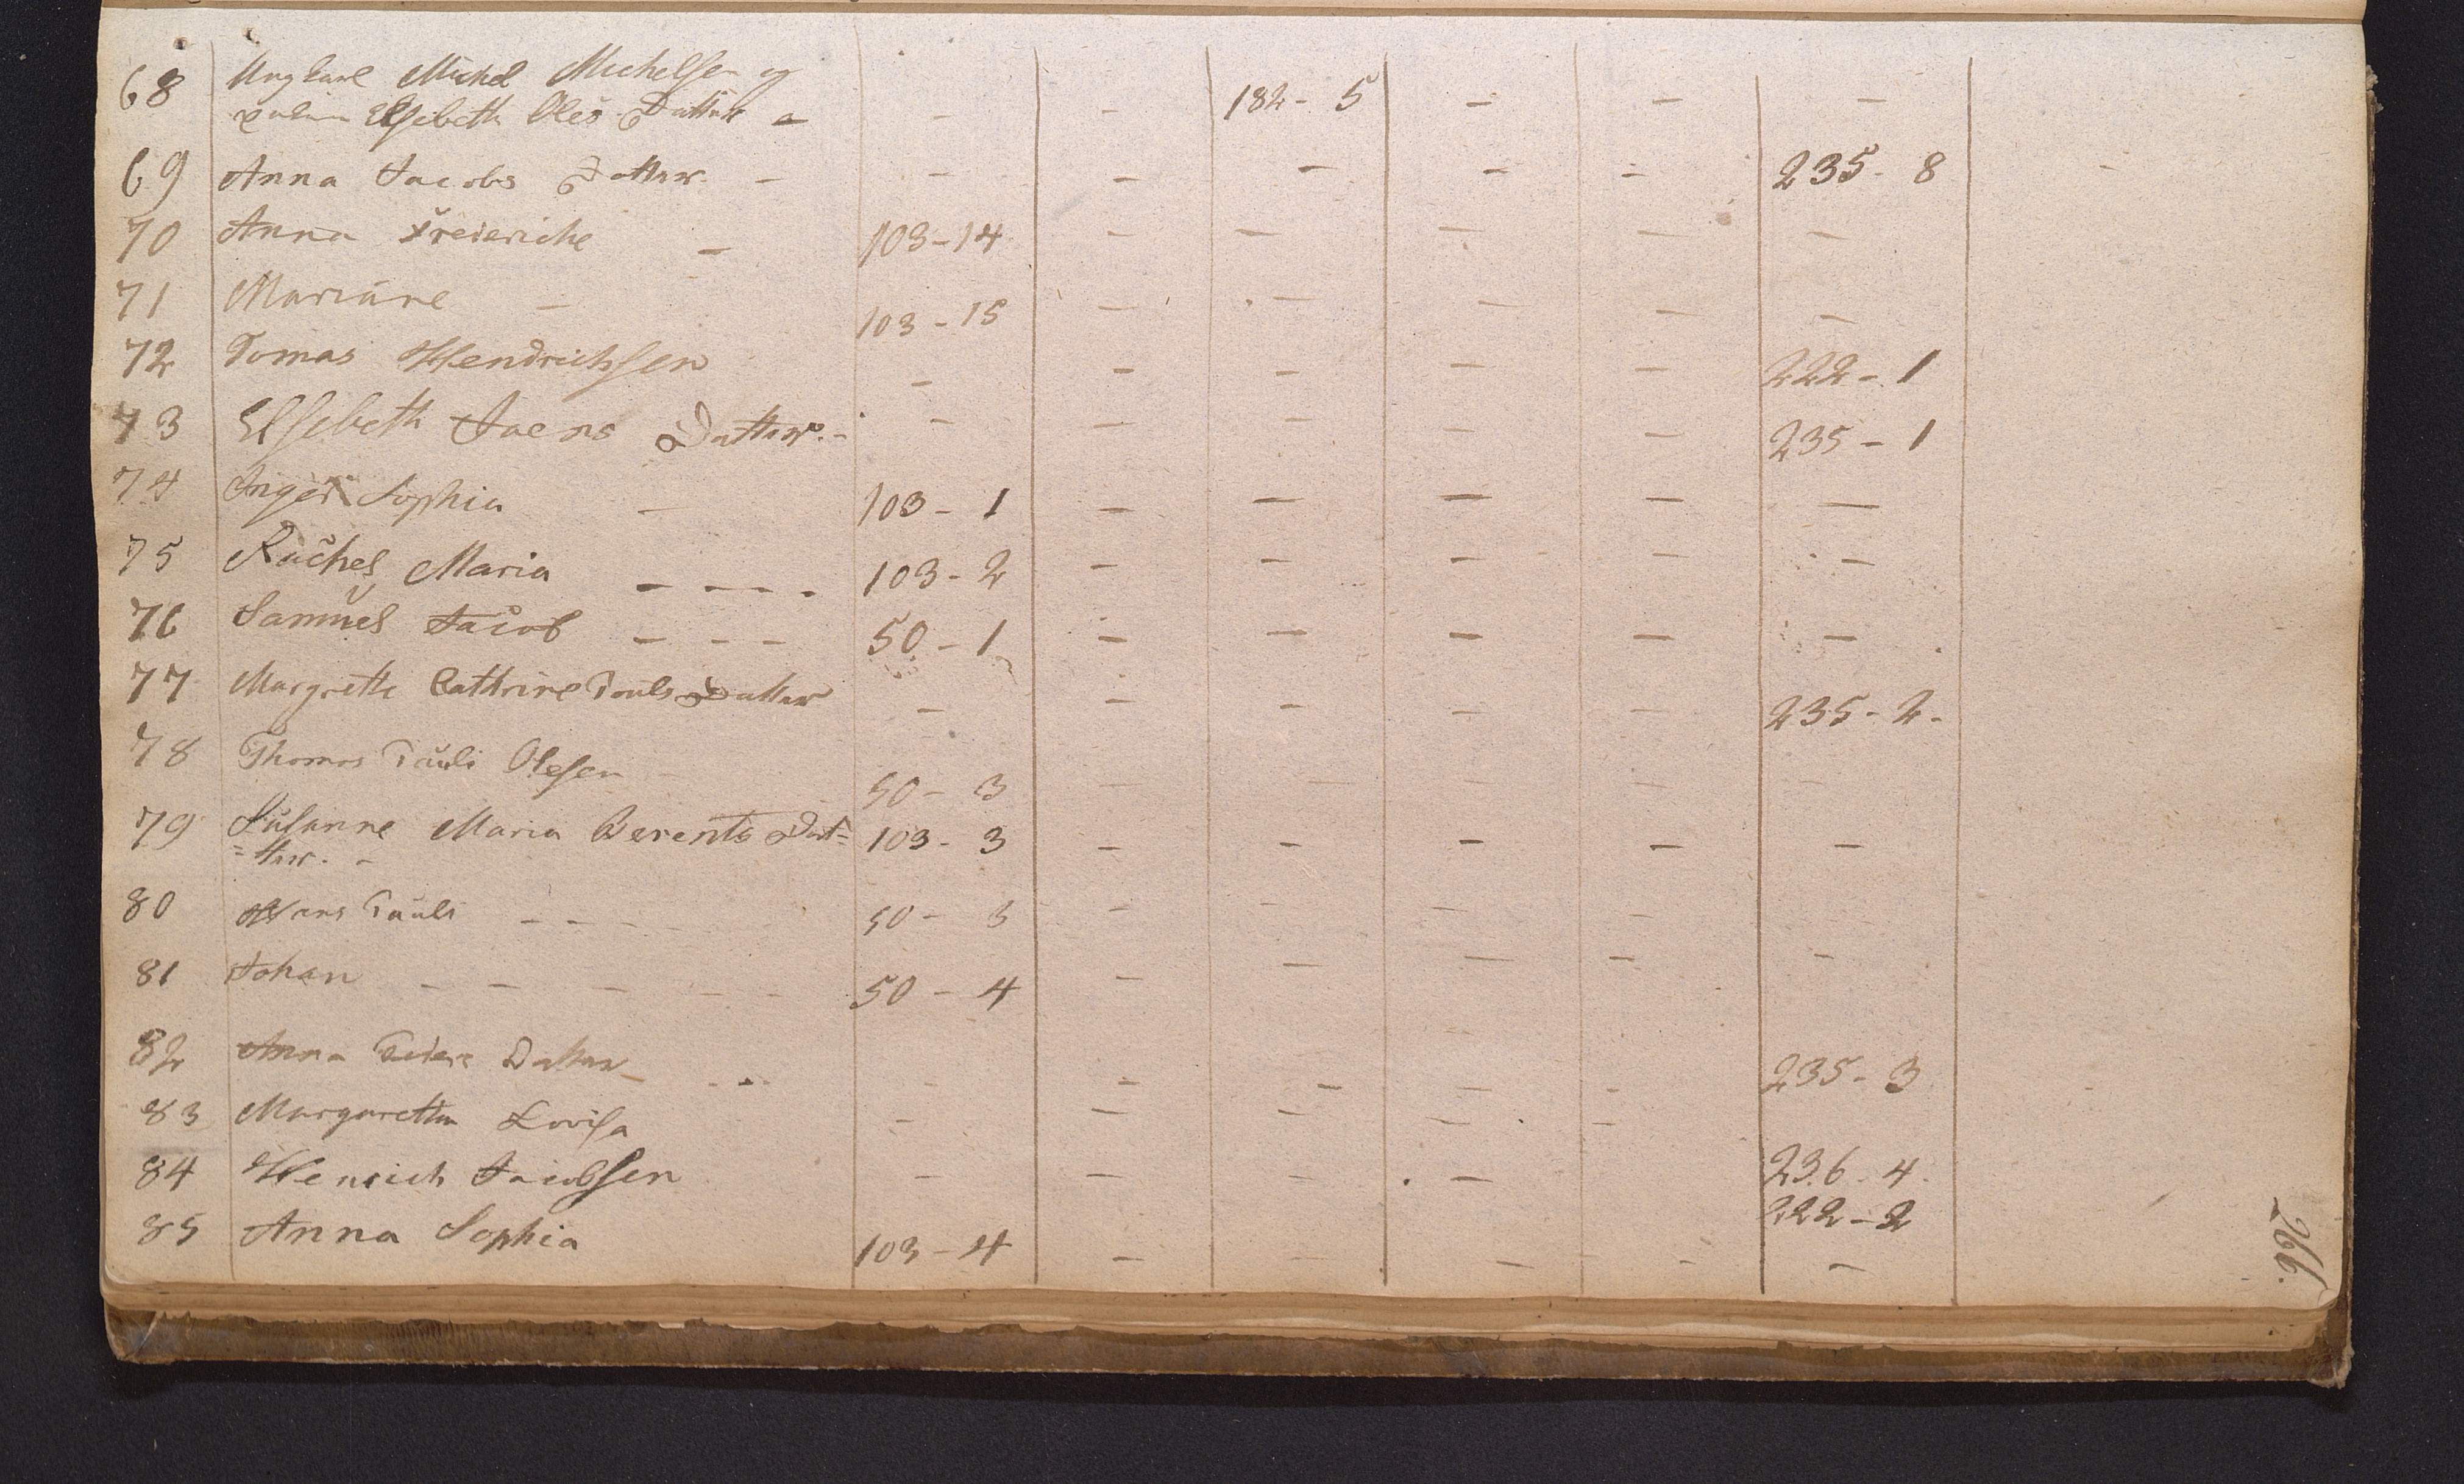 68 Ung Karl Michel Michelsen og - - 182 - 5 - - -
Elsebeth Oles Datter -
69 Anna Jacobs Datter - - - - - - 235 - 8 -
70 Anna Freiericke - 103 - 14 - - - - -
71 Mariane - 103 - 15 - - - - -
72 Tomas Hendrichsen - - - - - 222 - 1
73 Elsebeth Joens Datter. - - - - - - 235 - 1
74 Inger Sophia - 103 - 1 - - - - -
75 Rachel Maria - - - - 103 - 2 - - - - -
76 Samuel Jacob - - - 50 - 1 - - - - -
77 Margrethe Cathrine Pouls Datter - - - - - 235 - 2 -
78 Thomas Pauli Olesen - 50 - 3 - - - - -
79 Susanne Maria Berents Dat= 103 - 3 - - - - -
=ter. -
80 Hans Pauli - - - 50 - 3 - - - - -
81 Johan - - - - - 50 - 4 - - - - -
82 Anna Peders Datter - - - - - - - - 235 - 3 -
83 Margaretha Lovisa - - - - -
84 Henrich Jacobsen - - - - 236 - 4
222 - 2
85 Anna Sophia 103 - 4 - - - - -
266.